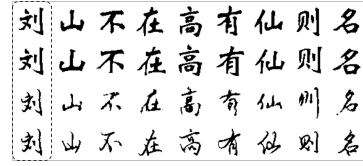 刘山不在高有仙则名
刘山不在高有仙则名
刘山不在高有仙则名
刘山不在高有仙则名